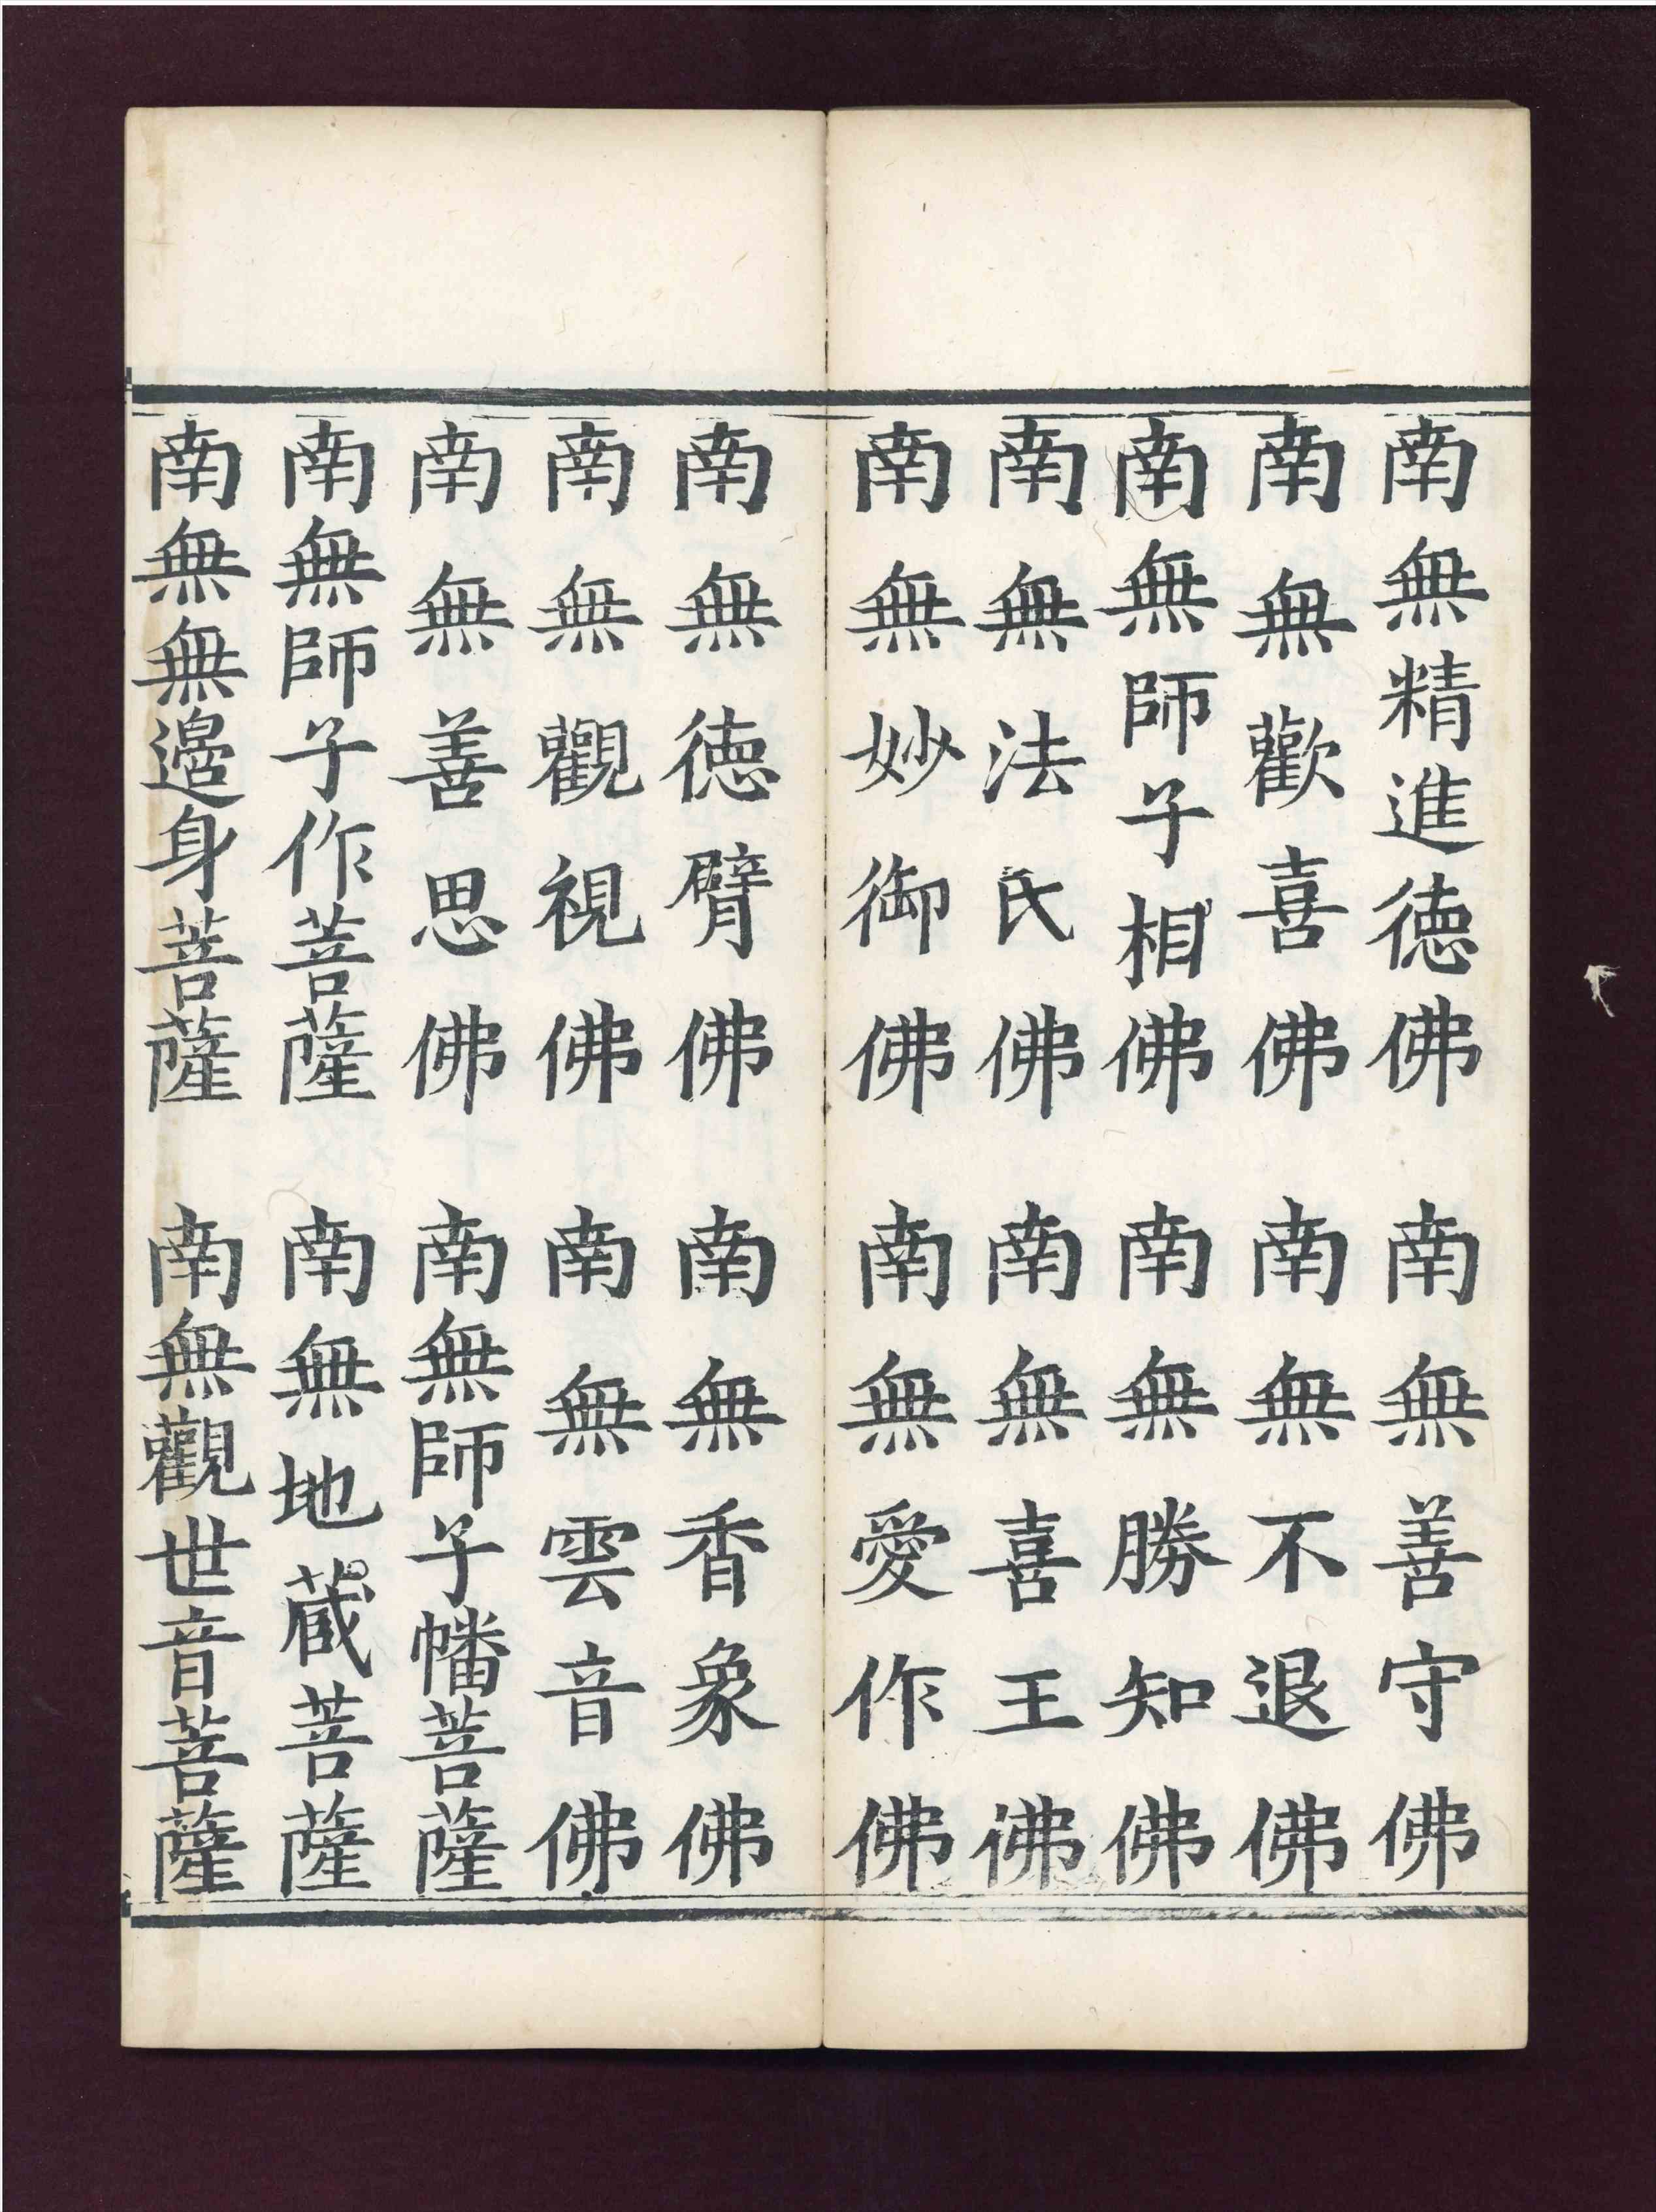 南無精進德佛　南無善守佛
南無歡喜佛　南無不退佛
南無師子相佛　南無勝知佛
南無法氏佛　南無喜王佛
南無妙御佛　南無愛作佛
南無徳臂佛　南無香象佛
南無觀視佛　南無雲音佛
南無善思佛　南無師子幡菩薩
南無師子作菩薩　南無地蔵菩薩
南無無邊身菩薩　南無觀世音菩薩